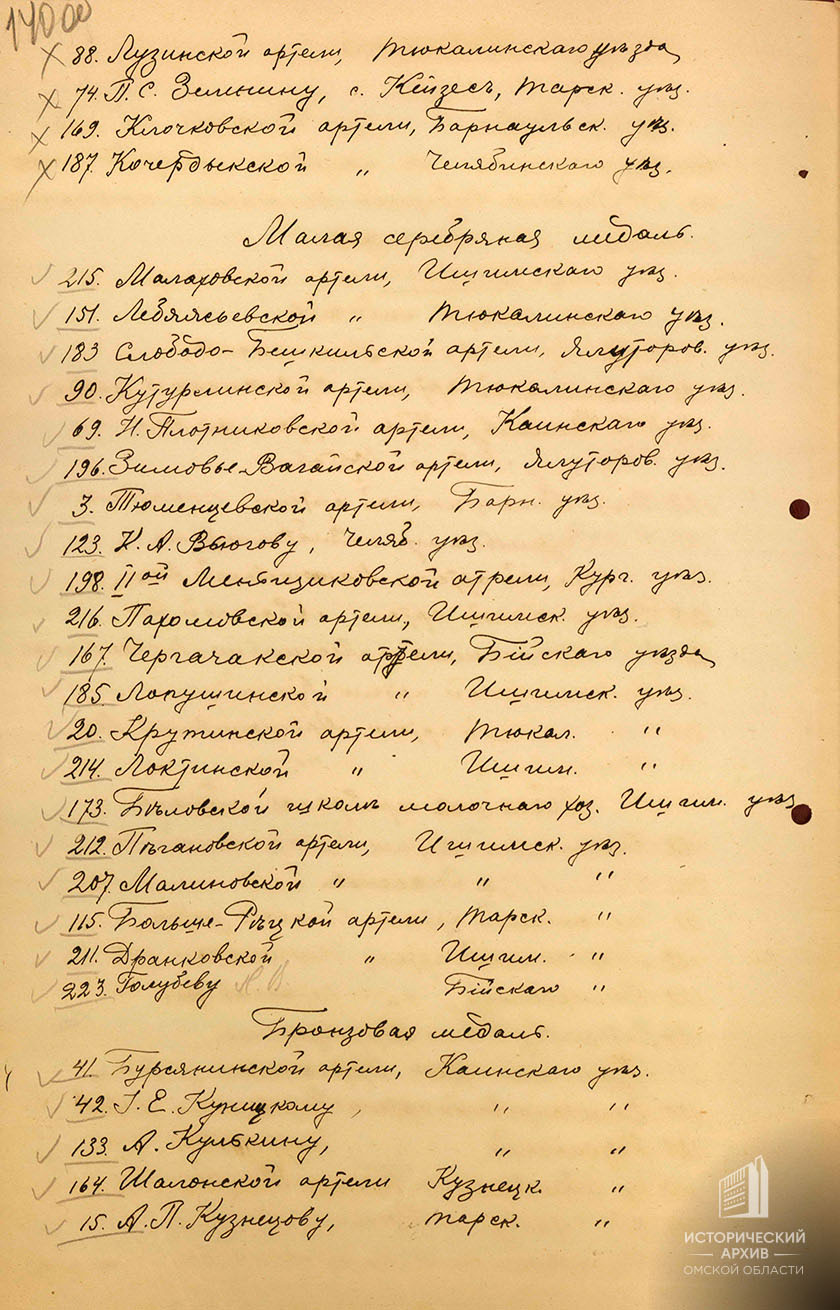 14000
88. Лузинской артели, Тюкалинскаго уѣзда
74. П. С. Земнину, с. Кейзесъ, Тарск. уѣз.
169. Клочковской артели, Барнаульск. уѣз.
187. Кочердыкской „ Челябинскаго уѣз.
Малая серебряная медаль.
215. Малаховской артели, Ишимскаго уѣз.
151. Лебяжьевской „ Тюкалинскаго уѣз.
183 Слободо-Бешкильской артели, Ялуторов. уѣз.
90. Кутурлинской артели, Тюкалинскаго уѣз.
69. Н. Плотниковской артели, Каинскаго уѣз.
196. Зимовье-Вагайской артели, Ялуторов. уѣз.
3. Тюменцевской артели, Барн. уѣз.
123. К. А. Вьюгову, Челяб. уѣз.
198. II ой Меньщиковской атрели, Кург. уѣз.
216. Пахомовской артели, Ишимск. уѣз.
167. Чергачакской артели, Бійскаго уѣзда
185. Лопушинской „ Ишимск. уѣз.
20. Крутинской артели, Тюкал. „
214. Локтинской „ Ишим. „
173. Бѣловской школѣ молочнаго хоз. Ишим. уѣз
212. Пѣгановской артели, Ишимск. уѣз.
207. Малиновской „ „ „
115. Больше-Рѣцкой артели, Тарск. „
211. Дранковской „ Ишим. „
223. Голубеву Бійскаго „
Бронзовая медаль.
41. Бурсянинской артели, Каинскаго уѣз.
42. І. Е. Куницкому, „ „
133. А. Кулькину, „ „
164. Шалонской артели Кузнецк. „
15. А. П. Кузнецову, Тарск. „
ИСТОРИЧЕСКИЙ
АРХИВ
ОМСКОЙ ОБЛАСТИ